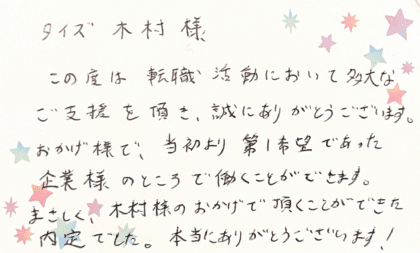 タイズ 木村 様
この度は 転職 活動において多大な
ご支援を頂き、誠にありがとうございます。
おかげ様で、当初より 第1希望であった
企業様のところで働くことができます。
まさしく、木村様のおかげで頂くことができた
内定でした。本当にありがとうございます!